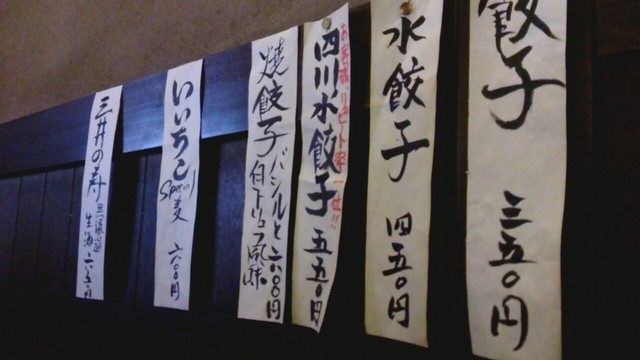 餃子 三五〇円
水餃子 四五〇円
お客様リピート率一位!!
四川水餃子 五五〇円
焼餃子 バジルと
白トリュフ風味 六〇〇円
いいちこ
Special麦 六〇〇円
三井の寿
生酒 六五〇円